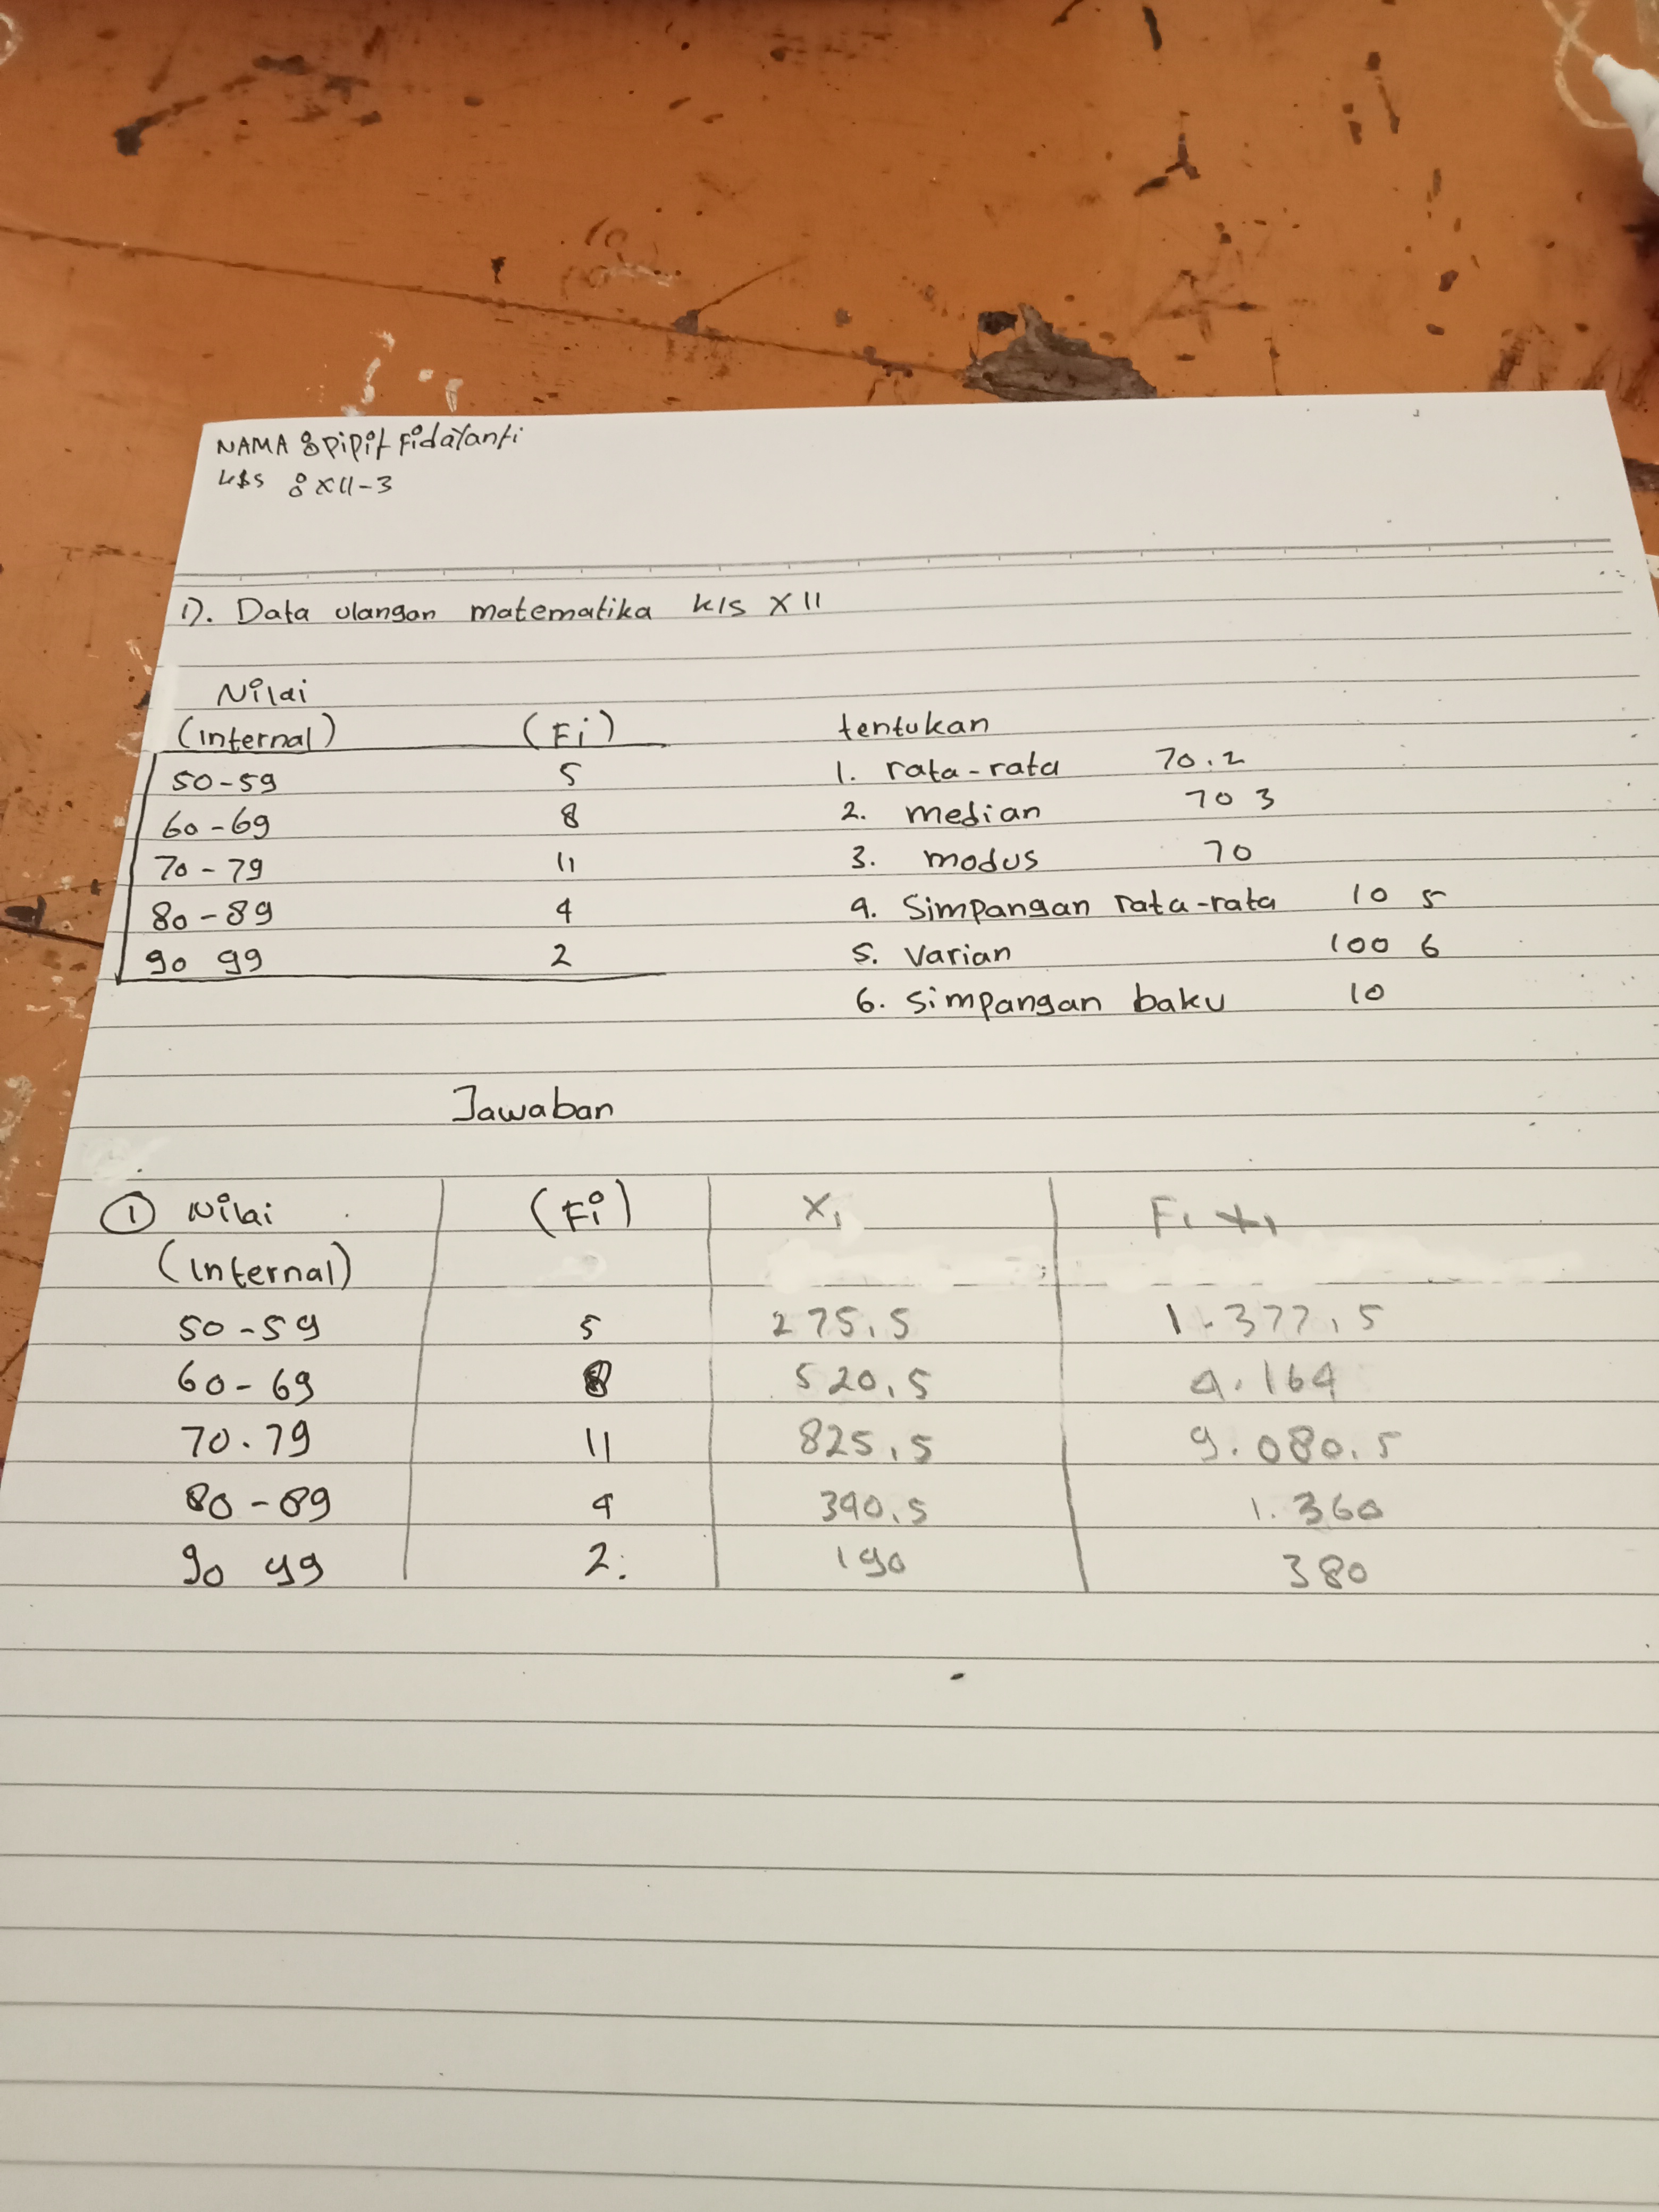 NAMA : Pipit Fidayanti
kls : XII-3
1). Data ulangan matematika kls XII
Nilai
(Internal) (Fi) tentukan
50-59 5 1. rata-rata 70.2
60-69 8 2. median 70 3
70-79 11 3. modus 70
80-89 4 4. Simpangan rata-rata 10 5
90 99 2 5. Varian 100 6
6. Simpangan baku 10
Jawaban
1 Nilai (Fi) X1 Fi x1
(Internal)
50-59 5 275,5 1.377,5
60-69 8 520,5 4.164
70.79 11 825,5 9.080.5
80-89 4 340,5 1.360
90 99 2. 190 380